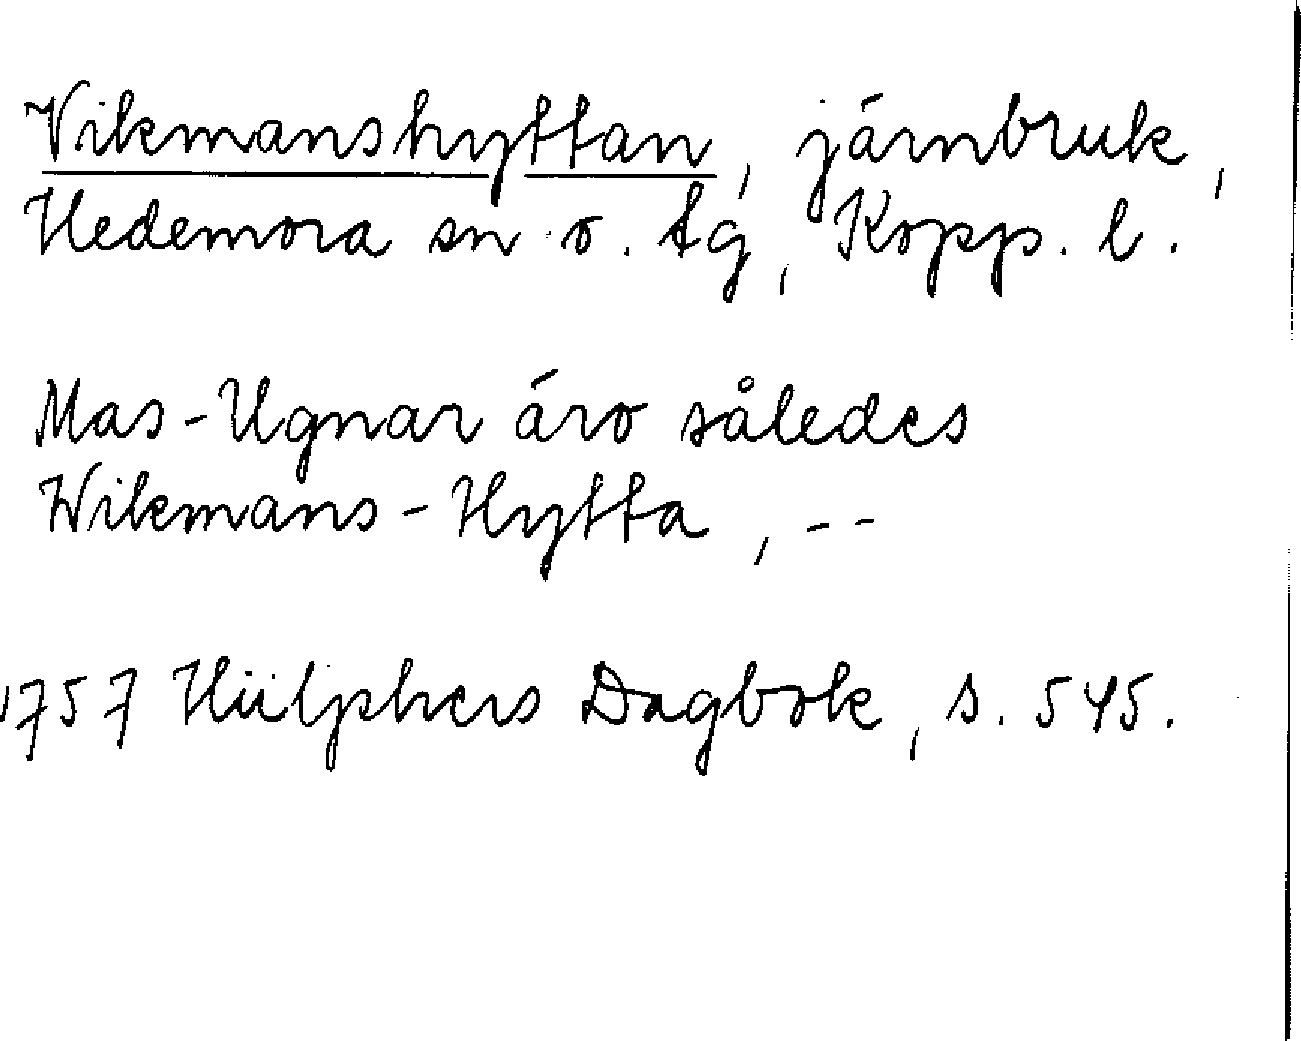 Vikmanshyttan, järnbruk,
Hedemora sn o. tg, Kopp. l.
Mas-Ugnar äro således
Wikmans-Hytta, --
1757 Hülphers Dagbok, s. 545.